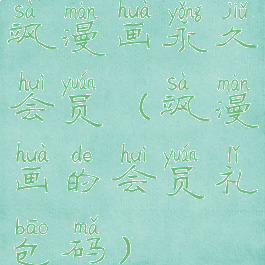 sà màn huà yǒng jiǔ
飒漫画永久
huì yuán sà màn
会员(飒漫
huà de huì yuán lǐ
画的会员礼
bāo mǎ
包码)